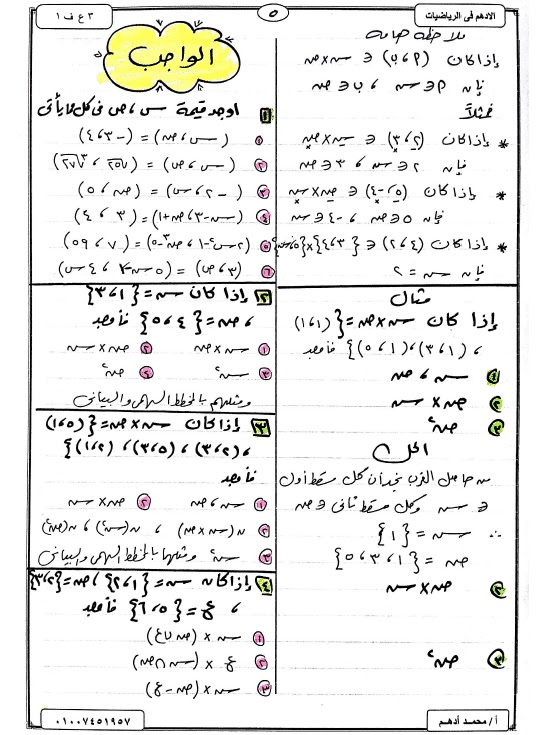 الأدهم فى الرياضيات
٥
٣ع ف ١
ملاحظة هامة
إذا كان (٢، ب) ∈ س × ص
فإن ٢ ∈ س ، ب ∈ ص
فمثلاً
* إذا كان (٢، ٣) ∈ س × ص
فإن ٢ ∈ س ، ٣ ∈ ص
* إذا كان (٥، -٤) ∈ ص × س
فإن ٥ ∈ ص ، -٤ ∈ س
* إذا كان (٢، ٤) ∈ {٣، ٤} × {س، ٥}
فإن س = ٢
مثال
إذا كان س × ص = {(١،١)
، (١، ٣)، (١، ٥)} فأوجد
١ س ، ص
٢ ص × س
٣ ص²
الحل
من حاصل الضرب نجد أن كل مسقط أول
∈ س وكل مسقط ثانى ∈ ص
∴ س = {١}
ص = {١، ٣، ٥}
٢ ص × س
٣ ص²
الواجب
١ اوجد قيمة س ، ص فى كل مما يأتى
١ (س، ص) = (-٣، ٤)
٢ (س، ص) = (√٢٥، ∛٢٧)
٣ (-٢، س) = (ص، ٥)
٤ (س-٣، ص+١) = (٣، ٤)
٥ (٢س-١، ص³-٥) = (٧، ٥٩)
٦ (٣، ص) = (٥س-٢، ٤س)
٢ إذا كان س = {١، ٣}
، ص = {٤، ٥} فأوجد
١ س × ص
٢ ص × س
٣ س²
٤ ص²
ومثلهم بالمخطط السهمى والبيانى
٣ إذا كان س × ص = {(٥،١)
، (٢، ٣)، (٥، ٣)، (٢، ١)}
فأوجد
١ س ، ص
٢ ص × س
٢ ن(س × ص) ، ن(س²) ، ن(ص²)
٣ س² ومثلها بالمخطط السهمى والبيانى
٤ إذا كان س = {١، ٢} ، ص = {٢، ٣}
، ع = {٥، ٦} فأوجد
١ س × (ص ∪ ع)
٢ ع × (س ∩ ص)
٣ س × (ص - ع)
أ / محمد أدهم
٠١٠٠٧٤٥١٩٥٧